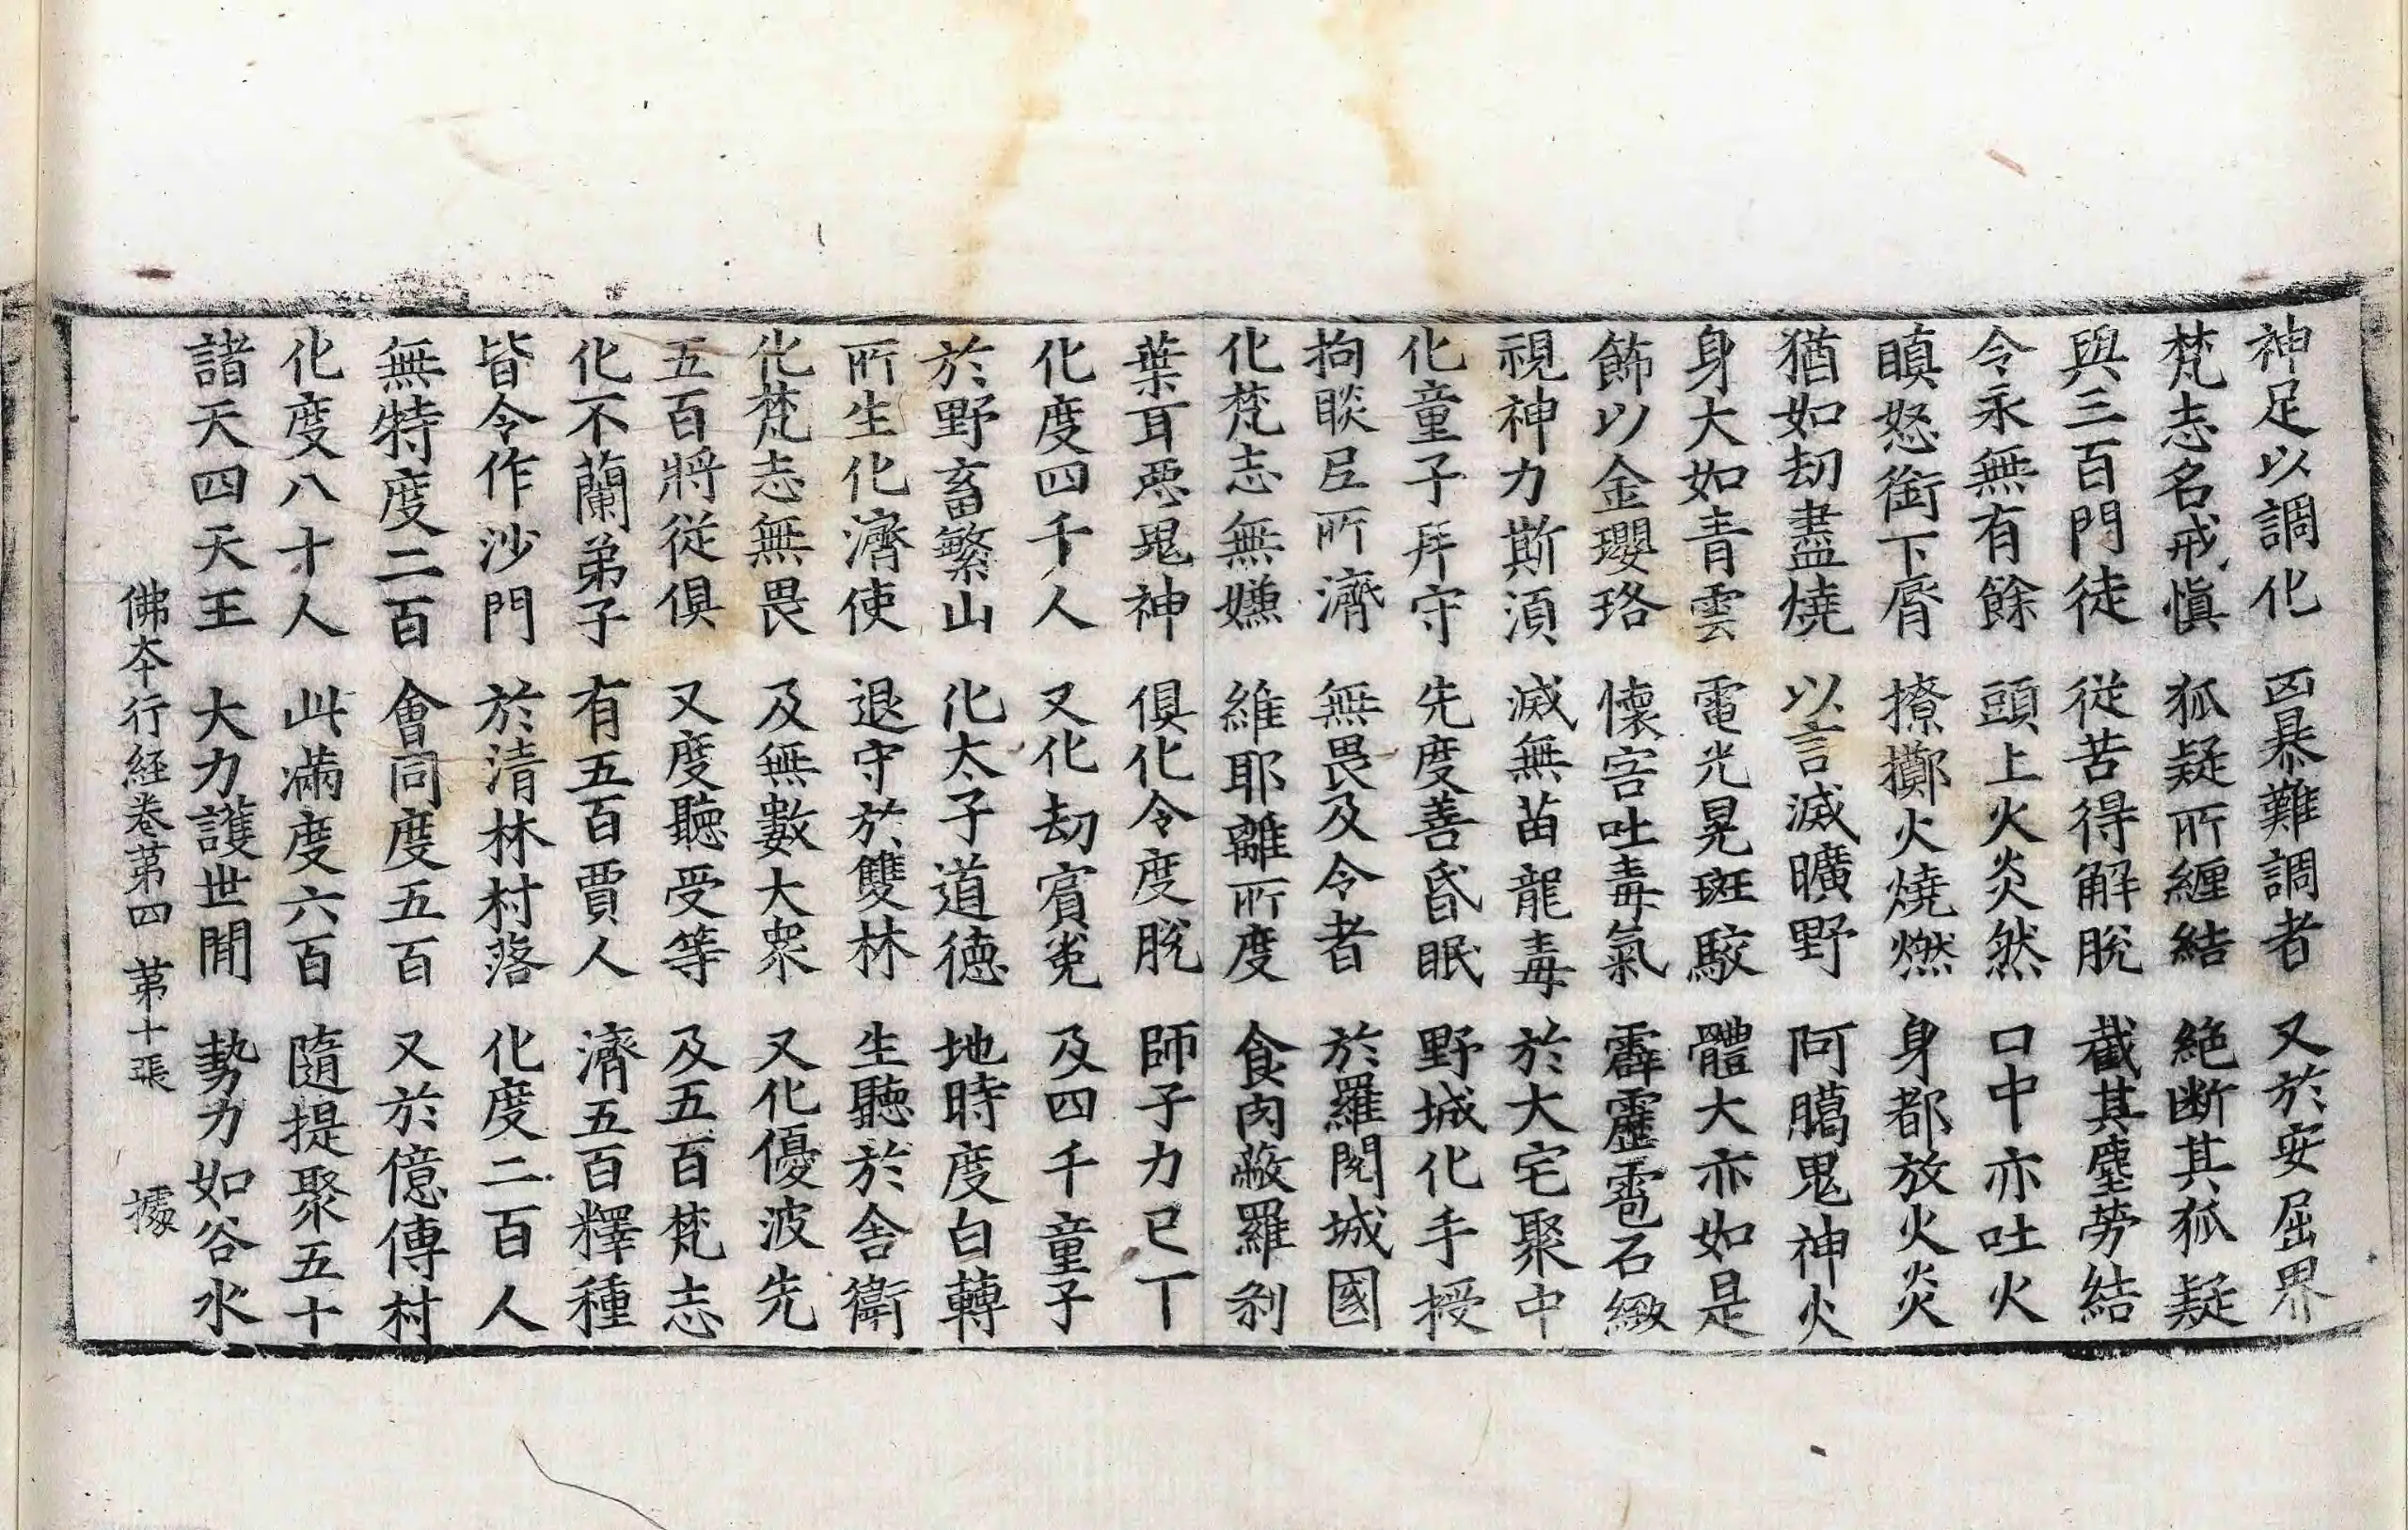 神足以調化 凶暴難調者 又於安屈界
梵志名戒愼 狐疑所纏結 絶断其狐疑
與三百門徒 從苦得解脫 截其塵勞結
令永無有餘 頭上火炎然 口中亦吐火
瞋怒銜下脣 撩擲火燒燃 身都放火炎
猶如劫盡燒 以言滅曠野 阿臈鬼神火
身大如青雲 電光晃斑駮 體大亦如是
飾以金瓔珞 懷害吐毒氣 霹靂雹石緻
視神力斯湏 滅無苗龍毒 於大宅聚中
化童子拜守 先度善昏眠 野城化手授
拘睒臣所濟 無畏及令者 於羅閱城國
化梵志無嫌 維耶離所度 食肉蔽羅刹
葉耳惡鬼神 俱化令度脫 師子力已丁
化度四千人 又化劫賓㝹 及四千童子
於野畜繁山 化太子道德 地時度白轉
所生化濟使 退守於雙林 生聽於舍衛
化梵志無畏 及無數大衆 又化優波先
五百將從俱 又度聽受等 及五百梵志
化不蘭弟子 有五百賈人 濟五百釋種
皆令作沙門 於清林村落 化度二百人
無特度二百 會同度五百 又於億傳村
化度八十人 此滿度六百 隨提聚五十
諸天四天王 大力護世間 勢力如谷水
佛本行経卷第四 第十張 據